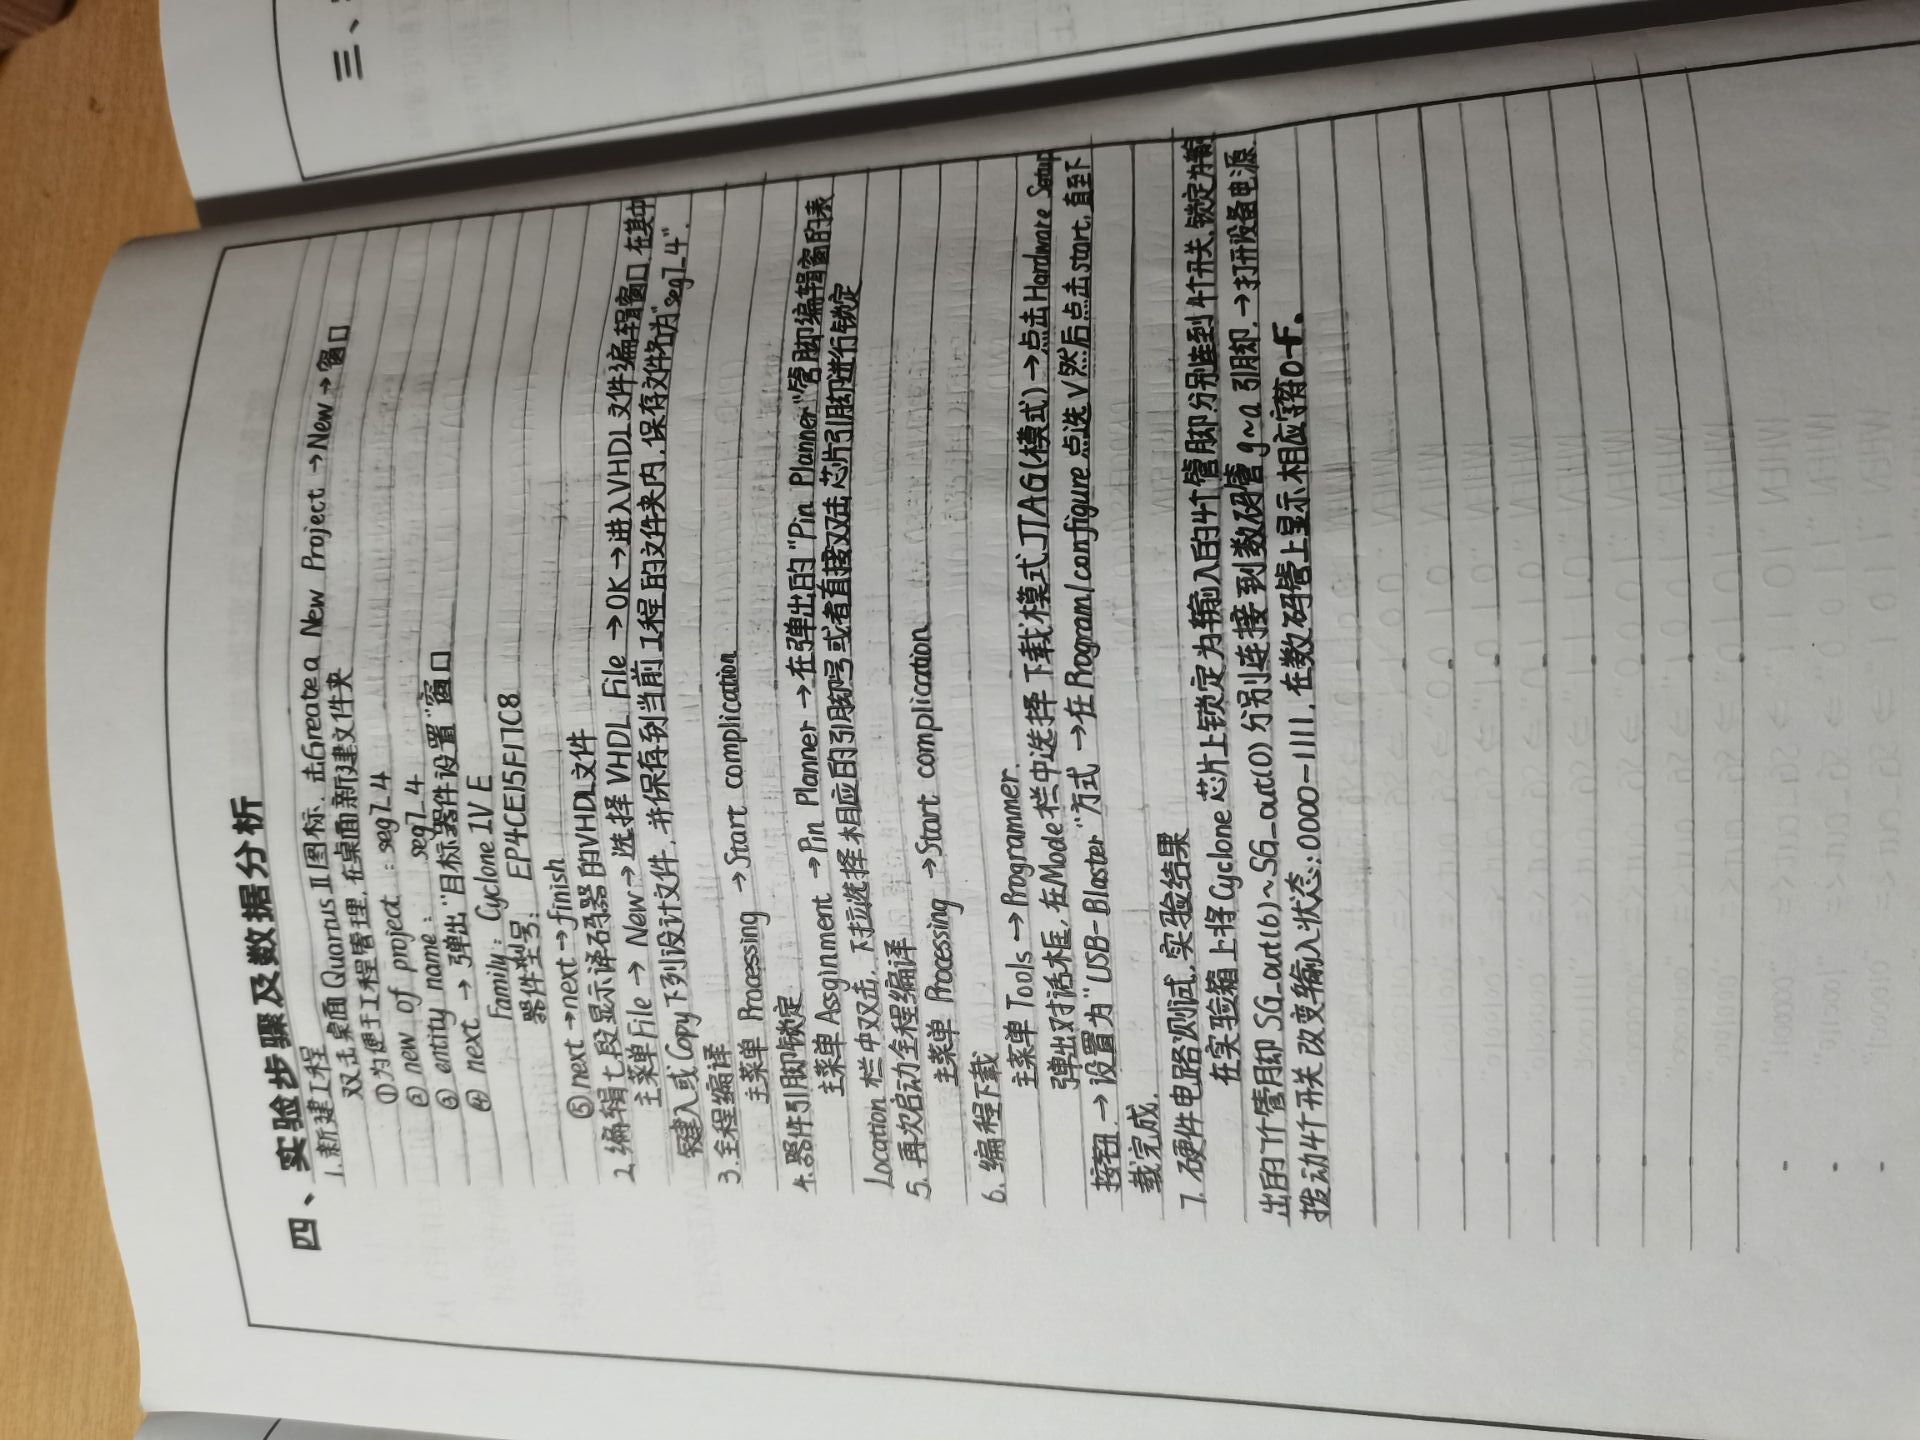 四、实验步骤及数据分析
1.新建工程
双击桌面Quartus Ⅱ图标，击Greate a New Project →New→窗口
①为便于工程管理，在桌面新建文件夹
② new of project : seg7_4
③ entity name: seg7_4
④ next → 弹出"目标器件设置"窗口
Family: Cyclone IV E
器件型号: EP4CE15F17C8
⑤next→next→finish
2.编辑七段显示译码器的VHDL文件
主菜单File → New→选择 VHDL File →OK→进入VHDL文件编辑窗口，在其中
键入或Copy下列设计文件，并保存到当前工程的文件夹内，保存文件名为"seg7_4".
3.全程编译
主菜单 Processing →Start complication
4.器件引脚锁定
主菜单Assginment →Pin Planner →在弹出的"Pin Planner"管脚编辑窗的表
Location 栏中双击，下拉选择相应的引脚号或者直接双击芯片引脚进行锁定
5.再次启动全程编译
主菜单 Processing →Start complication
6.编程下载
主菜单Tools →Programmer.
弹出对话框，在Mode栏中选择下载模式JTAG(模式)→点击Hardware Setup
按钮.→设置为"USB-Blaster"方式 →在Program/configure点选√然后点击start，直至下
载完成.
7.硬件电路测试，实验结果
在实验箱上将Cyclone芯片上锁定为输入的4个管脚分别连到4个开关，锁定为输
出的7个管脚SG_out(6)~SG_out(0)分别连接到数码管g~a引脚.→打开设备电源.
拨动4个开关改变输入状态:0000-1111，在数码管上显示相应字符0-F。
三、